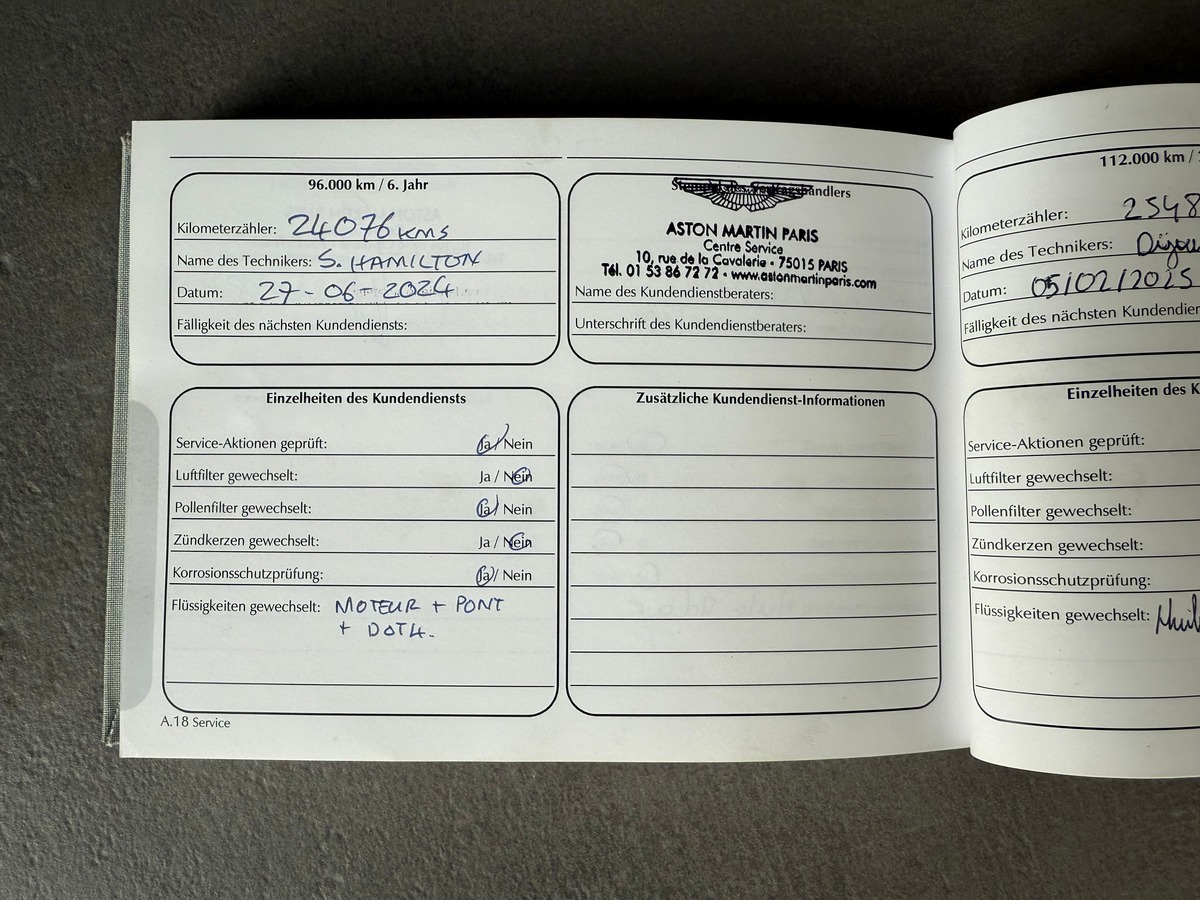 96.000 km / 6. Jahr
Kilometerzähler: 24076 KMS
Name des Technikers: S. HAMILTON
Datum: 27-06-2024
Fälligkeit des nächsten Kundendiensts:
ASTON MARTIN PARIS
Centre Service
10, rue de la Cavalerie • 75015 PARIS
Tél. 01 53 86 72 72 • www.astonmartinparis.com
Name des Kundendienstberaters:
Unterschrift des Kundendienstberaters:
Einzelheiten des Kundendiensts
Service-Aktionen geprüft: Ja / Nein
Luftfilter gewechselt: Ja / Nein
Pollenfilter gewechselt: Ja / Nein
Zündkerzen gewechselt: Ja / Nein
Korrosionsschutzprüfung: Ja / Nein
Flüssigkeiten gewechselt: MOTEUR + PONT
+ DOT4.
Zusätzliche Kundendienst-Informationen
A.18 Service
112.000 km /
Kilometerzähler: 2548
Name des Technikers:
Datum: 05/02/2025
Fälligkeit des nächsten
Einzelheiten des K
Service-Aktionen geprüft:
Luftfilter gewechselt:
Pollenfilter gewechselt:
Zündkerzen gewechselt:
Korrosionsschutzprüfung:
Flüssigkeiten gewechselt: